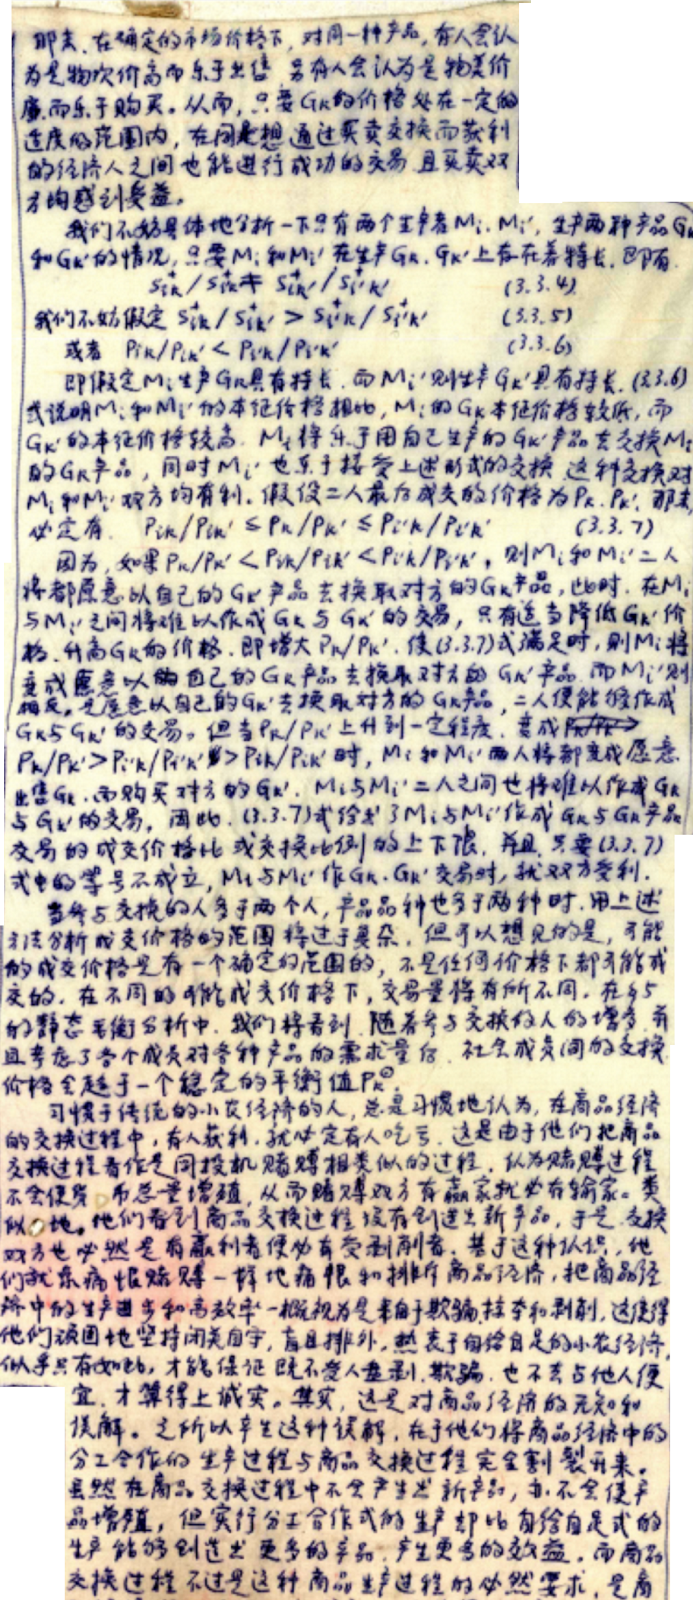 那末、在确定的市场价格下，对同一种产品，有人会认
为是物次价高而乐于出售，另有人会认为是物美价
廉而乐于购买。从而，只要Gk的价格处在一定的
适度的范围内，在同是想通过买卖交换而获利
的经济人之间也能进行成功的交易，且买卖双
方均感到受益。
我们不妨具体地分析一下只有两个生产者Mi、Mi′，生产两种产品Gk
和Gk′的情况，只要Mi和Mi′在生产Gk、Gk′上存在着特长，即有
S⁺ik/S⁺ik′≠S⁺i′k/S⁺i′k′ (3.3.4)
我们不妨假定 S⁺ik/S⁺ik′ > S⁺i′k/S⁺i′k′ (3.3.5)
或者 Pik/Pik′ < Pi′k/Pi′k′ (3.3.6)
即假定Mi生产Gk具有特长，而Mi′则生产Gk′具有特长。(3.3.6)
式说明Mi和Mi′的本征价格相比，Mi的Gk本征价格较低，而
Gk′的本征价格较高。Mi′将乐于用自己生产的Gk′产品去交换Mi
的Gk产品，同时Mi也乐于接受上述形式的交换，这种交换对
Mi和Mi′双方均有利。假设二人最后成交的价格为Pk、Pk′，那末
必定有 Pik/Pik′ ≤ Pk/Pk′ ≤ Pi′k/Pi′k′ (3.3.7)
因为，如果Pk/Pk′ < Pik/Pik′ < Pi′k/Pi′k′，则Mi和Mi′二人
将都愿意以自己的Gk′产品去换取对方的Gk产品，此时，在Mi
与Mi′之间将难以作成Gk与Gk′的交易，只有适当降低Gk′价
格、升高Gk的价格，即增大Pk/Pk′，使(3.3.7)式满足时，则Mi将
变成愿意以自己的Gk产品去换取对方的Gk′产品，而Mi′则
相反，是愿意以自己的Gk′去换取对方的Gk产品，二人便能够作成
Gk与Gk′的交易。但当Pk/Pk′上升到一定程度，变成
Pk/Pk′>Pi′k/Pi′k′>Pik/Pik′时，Mi和Mi′两人将都变成愿意
出售Gk，而购买对方的Gk′，Mi与Mi′二人之间也将难以作成Gk
与Gk′的交易，因此，(3.3.7)式给出了Mi与Mi′作成Gk与Gk′产品
交易的成交价格比或交换比例的上下限，并且，只要(3.3.7)
式中的等号不成立，Mi与Mi′作Gk、Gk′交易时，就双方受利。
当参与交换的人多于两个人，产品品种也多于两种时，用上述
方法分析成交价格的范围将过于复杂，但可以想见的是，可能
的成交价格是有一个确定的范围的，不是任何价格下都可能成
交的。在不同的可能成交价格下，交易量将有所不同。在§5
的静态平衡分析中，我们将看到，随着参与交换的人的增多，并
且考虑了各个成员对各种产品的需求量后，社会成员间的交换
价格会趋于一个稳定的平衡值Pk⁰。
习惯于传统的小农经济的人，总是习惯地认为，在商品经济
的交换过程中，有人获利，就必定有人吃亏，这是由于他们把商品
交换过程看作是同投机赌赙相类似的过程，认为赌赙过程
不会使货币总量增殖，从而赌赙双方有赢家就必有输家。类
似地，他们看到商品交换过程没有创造出新产品，于是，交换
双方也必然是有赢利者便必有受剥削者。基于这种认识，他
们就象痛恨赌赙一样地痛恨和排斥商品经济，把商品经
济中的生产进步和高效率一概视为是来自于欺骗、掠夺和剥削，这使得
他们顽固地坚持闭关自守，盲目排外，热衷于自给自足的小农经济，
似乎只有如此，才能保证既不受人盘剥、欺骗，也不去占他人便
宜，才算得上诚实。其实，这是对商品经济的无知和
误解。之所以产生这种误解，在于他们将商品经济中的
分工合作的生产过程与商品交换过程完全割裂开来。
虽然在商品交换过程中不会产生出新产品，亦不会使产
品增殖，但实行分工合作式的生产却比自给自足式的
生产能够创造出更多的产品，产生更多的效益，而商品
交换过程不过是这种商品生产过程的必然要求，是商